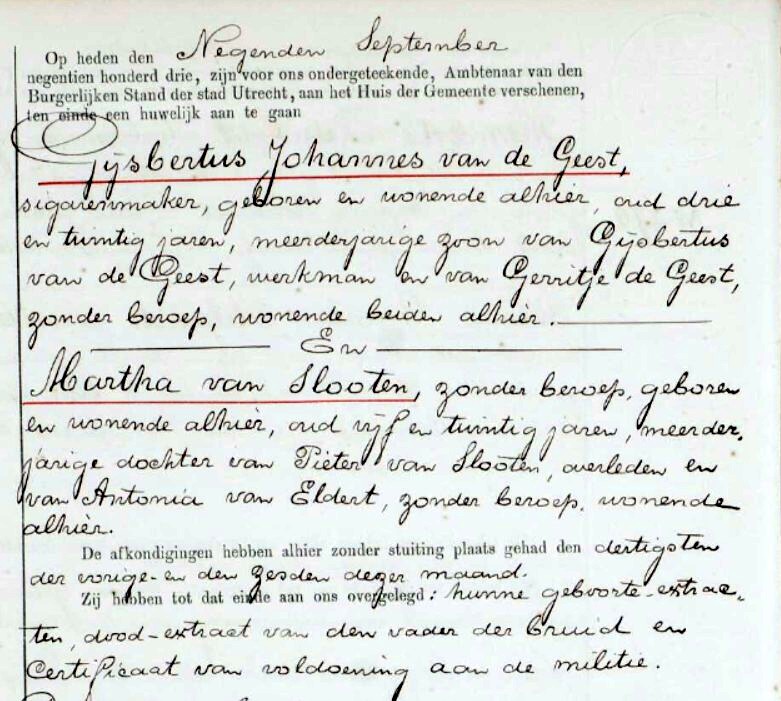 Op heden den Negenden September
negentien honderd drie, zijn voor ons ondergeteekende, Ambtenaar van den
Burgerlijken Stand der stad Utrecht, aan het Huis der Gemeente verschenen,
ten einde een huwelijk aan te gaan
Gijsbertus Johannes van de Geest,
sigarenmaker, geboren en wonende alhier, oud drie
en twintig jaren, meerderjarige zoon van Gijsbertus
van de Geest, werkman en van Gerritje de Geest,
zonder beroep, wonende beiden alhier.
En
Martha van Slooten, zonder beroep, geboren
en wonende alhier, oud vijf en twintig jaren, meerder,
jarige dochter van Pieter van Slooten, overleden en
van Antonia van Eldert, zonder beroep, wonende
alhier.
De afkondigingen hebben alhier zonder stuiting plaats gehad den dertigsten
der vorige- en den zesden dezer maand.
Zij hebben tot dat einde aan ons overgelegd: hunne geboorte-extrac-
ten, dood-extract van den vader der bruid en
Certificaat van voldoening aan de militie.